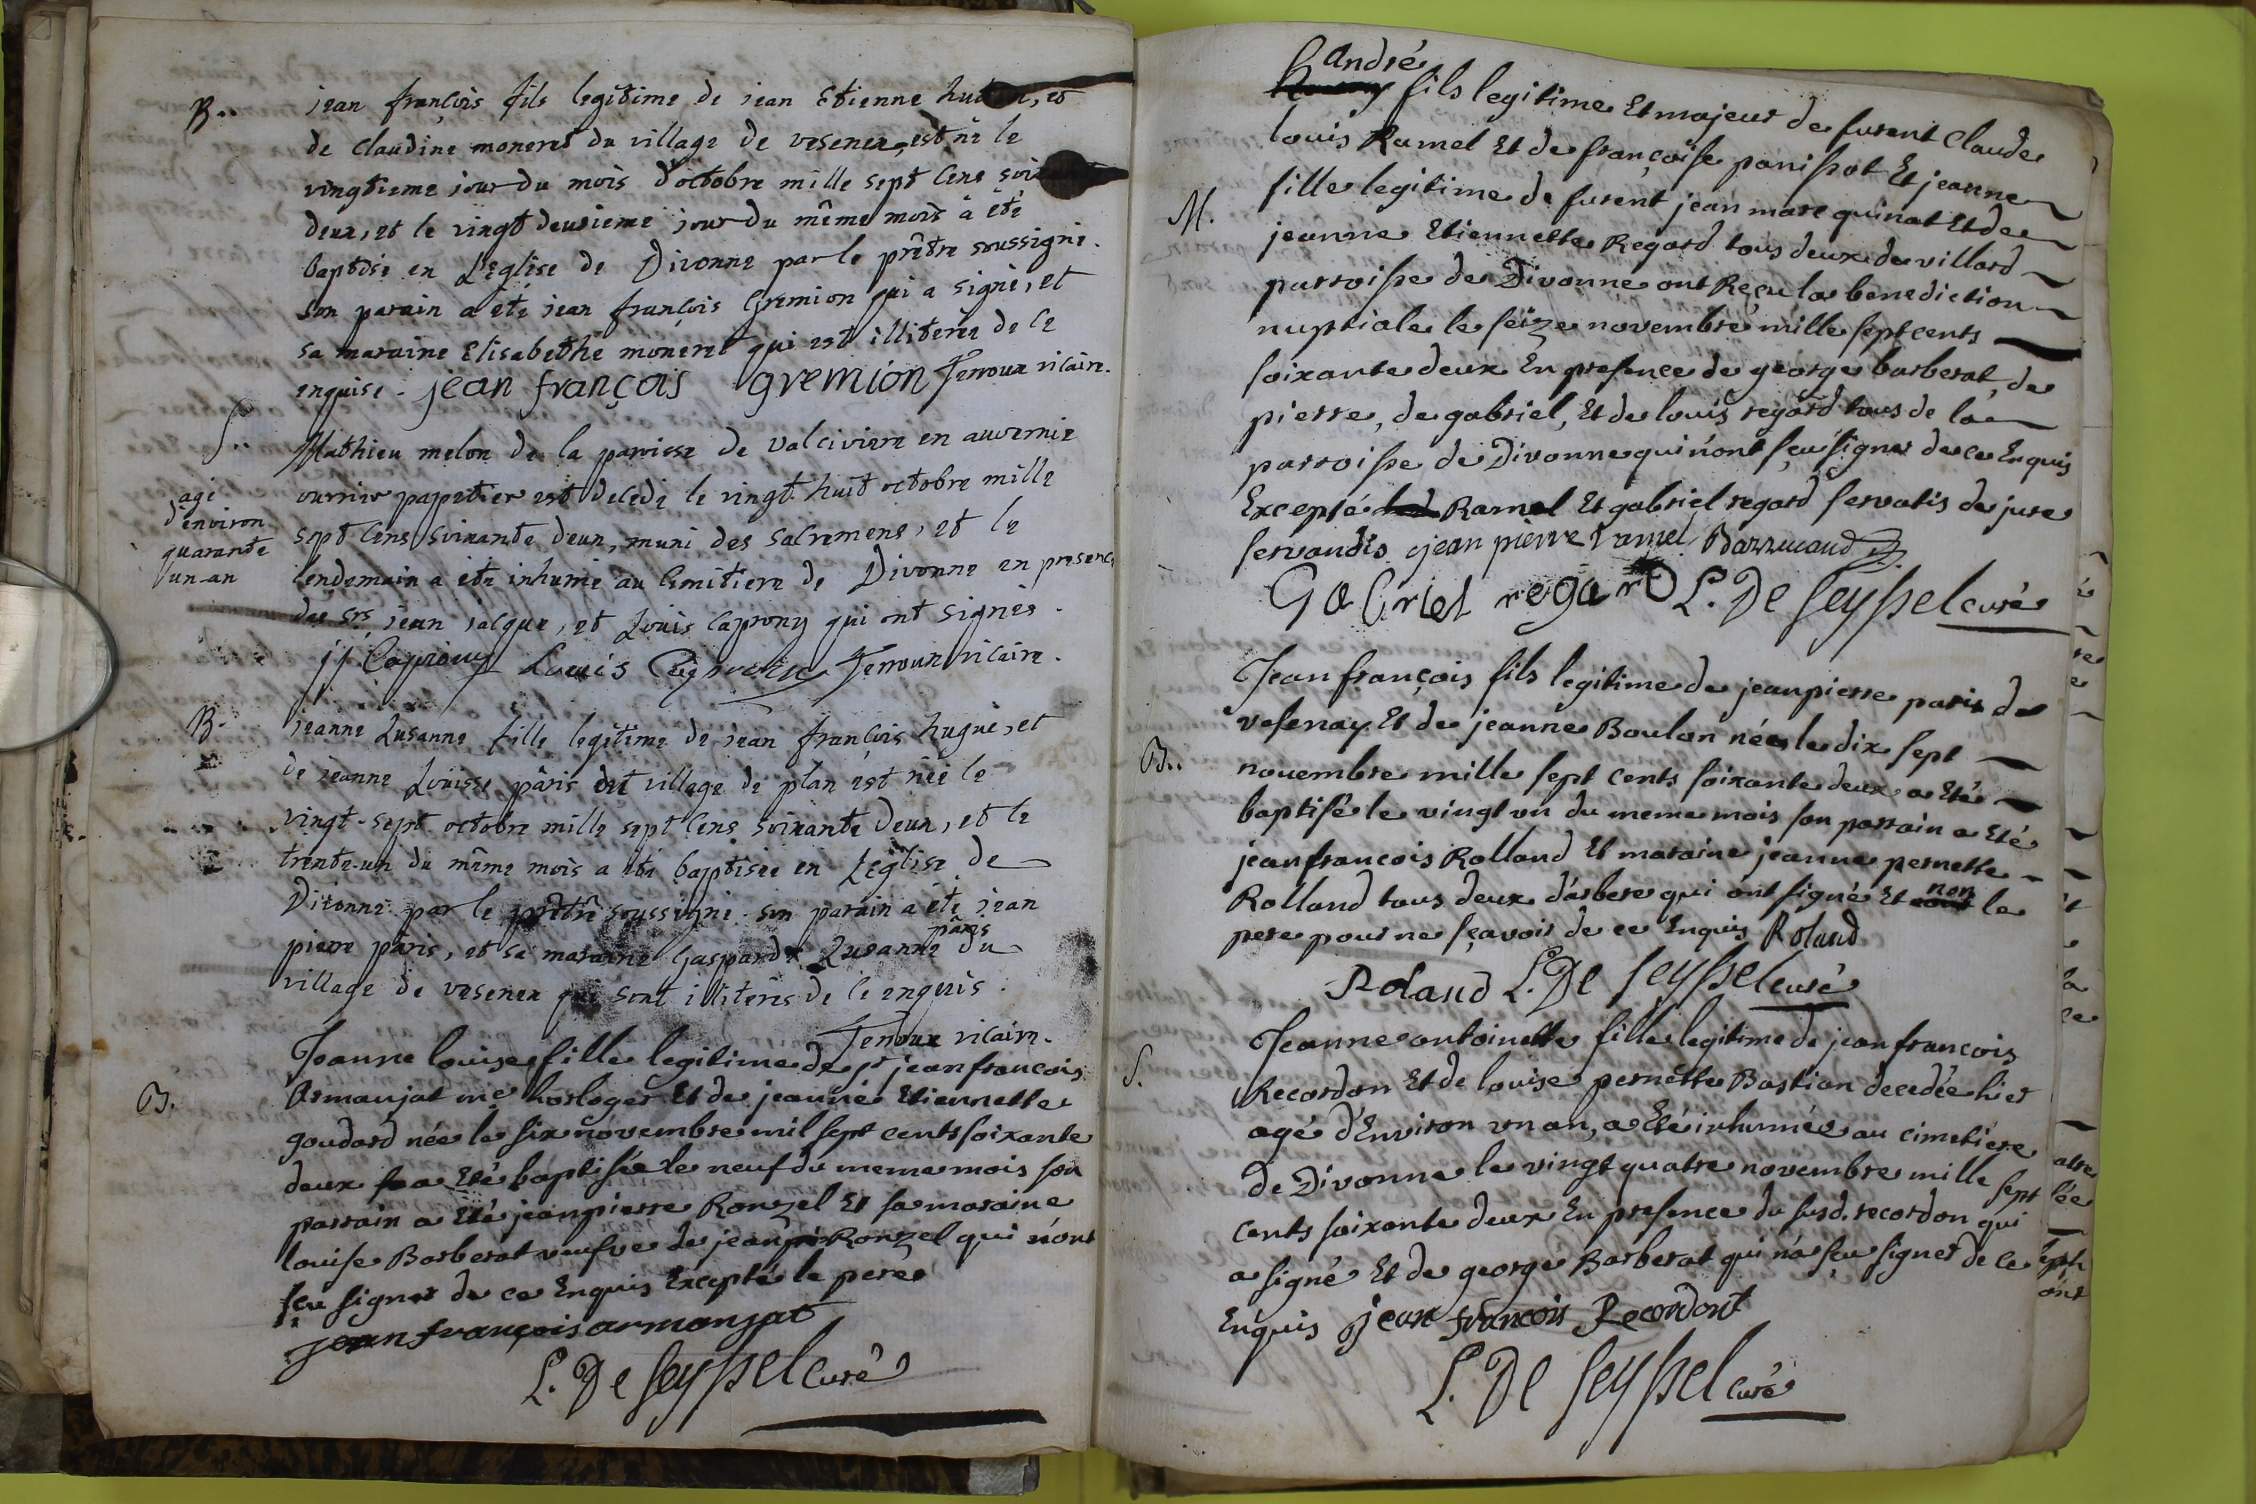 B..
jean françois fils legitime de jean Etienne
de Claudine moneret du village de vesenex, est né le
vingtieme jour du mois d'octobre mille sept cens
deux, et le vingt deusieme jour du même mois à été
baptisé en L'Eglise de Divonne par le prêtre soussigné.
son parain a eté jean françois Gremion qui a signé, et
sa maraine Elisabethe moneret qui est illiterée de ce
enquise. jean françois gremion Fenoux vicaire.
S..
Mathieu melon de la paroisse de valciviere en auvernie
ouvrier papetier est decedé le vingt huit octobre mille
sept cens soixante deux, muni des sacremens, et le
lendemain a eté inhumé au cimitiere de Divonne en presence
des srs jean jacque, et Louis Caprony qui ont signés.
agé
d'environ
quarante
un an
jj Caprony Louis Caprony Fenoux vicaire.
B.
jeanne Susanne fille legitime de jean françois hugue, et
de jeanne Louise pâris du village de plan est née le
vingt-sept octobre mille sept cens soixante deux, et le
trente-un du même mois a été baptisée en L'Eglise de
Divonne par le prêtre soussigné. son parain a été jean
pierre pâris, et sa maraine Gaspardx Susanne pâris du
village de vesenex qui sont illiterés de ce enquis.
Fenoux vicaire.
B.
Jeanne louise fille legitime de sr jean francois
Armanjat me horloger Et de jeanne Etiennette
goudard née le six novembre mil sept cents soixante
deux a Eté baptisée le neuf du meme mois son
parrain a Eté jean pierre Ronzel Et sa maraine
louise Barberat veufve de jean Ronzel qui n'ont
sçu signer de ce Enquis Excepté le pere
jean françois armanjat
L. De Seyssel Curé
André
fils legitime Et majeur de furent Claude
louis Ramel Et de françoise panissot Et jeanne
M.
fille legitime de furent jean marc quinat Et de
jeanne Etiennette Regard tous deux de villard
parroisse de Divonne ont Reçu la benediction
nuptiale le seize novembre mille sept cents
soixante deux En presence de george barberat, de
pierre, de gabriel, Et de louis regard tous de la
parroisse de Divonne qui n'ont sçu signer de ce Enquis
Excepté Ramel Et gabriel regard servatis de jure
servandis jean pierre ramel Barrucand
Gabriel regard L. De Seyssel curé
Jean françois fils legitime de jean pierre paris de
vesenay Et de jeanne Boulon née le dix sept
B..
novembre mille sept cents soixante deux a Eté
baptisé le vingt un du meme mois son parrain a Eté
jean francois Rolland Et maraine jeanne pernette
Rolland tous deux d'arbere qui ont signé Et non le
pere pour ne sçavoir de ce Enquis Roland
Roland L. De Seyssel curé
S.
Jeanne antoinette fille legitime de jean francois
Recordon Et de louise pernette Bastian decedée hier
agé d'Environ un an, a Eté inhumée au cimetiere
de Divonne le vingt quatre novembre mille sept
cents soixante deux En presence du susd. recordon qui
a signé Et de george Barberat qui n'a sçu signer de ce
Enquis jean francois Recordont
L. De Seyssel curé